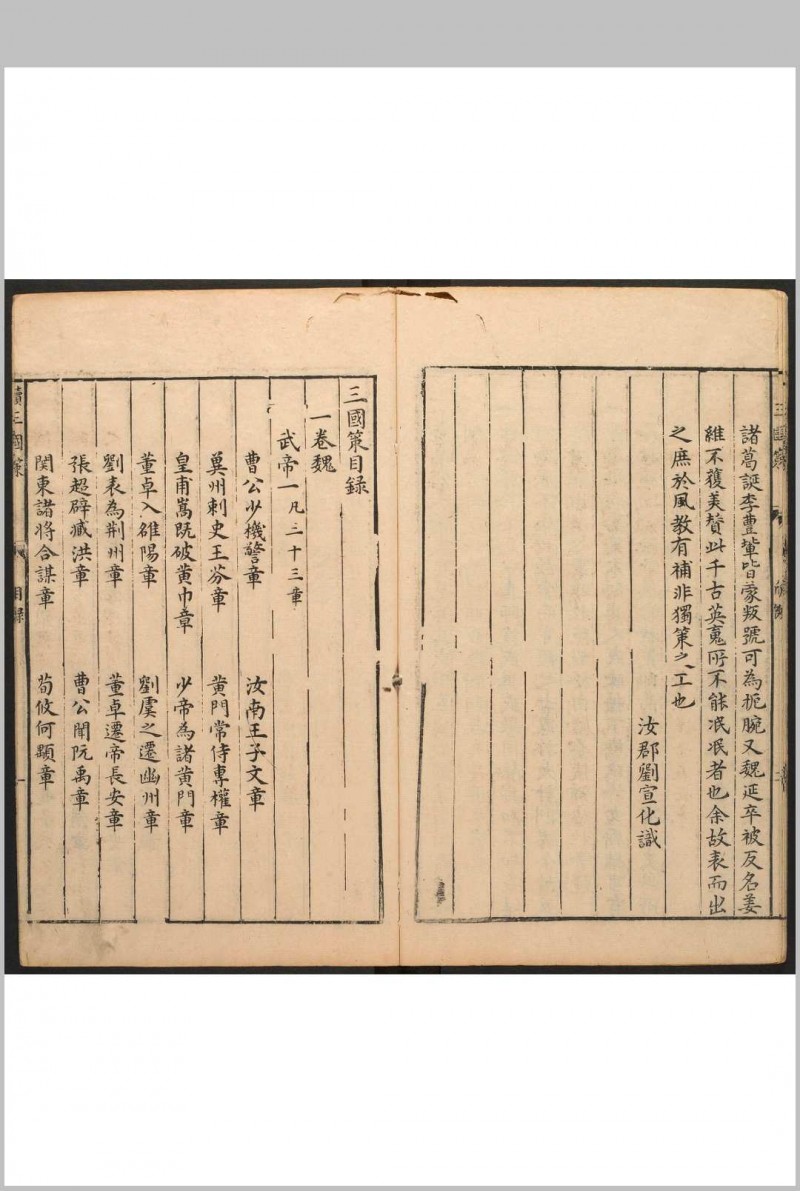 諸葛誕李豐輩皆蒙叛號可為扼腕又魏延卒被反名姜
維不獲美贊此千古英寃所不能泯泯者也余故表而出
之庶於風教有補非獨策之工也
汝郡劉宣化識
三國策目録
一卷魏
武帝一凡二十三章
曹公少機警章
汝南王子文章
冀州刺史王芬章
黄門常侍專權章
皇甫嵩既破黄巾章
少帝為諸黄門章
董卓入雒陽章
劉虞之遷幽州章
劉表為荆州章
董卓遷帝長安章
張超辟臧洪章
曹公聞阮禹章
関東諸將合謀章
荀攸何顒章
三國策
目録
一